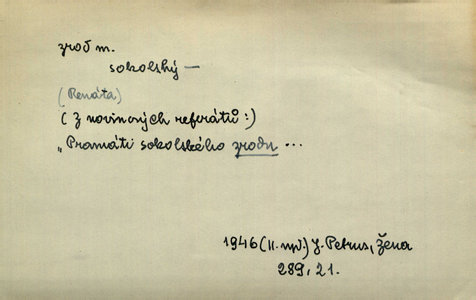 zrod m.
sokolský —
(Renáta)
(z novinových referátů:)
„Pramáti sokolského zrodu ...
1946 (II. vyd.) J. Petrus, Žena
289, 21.